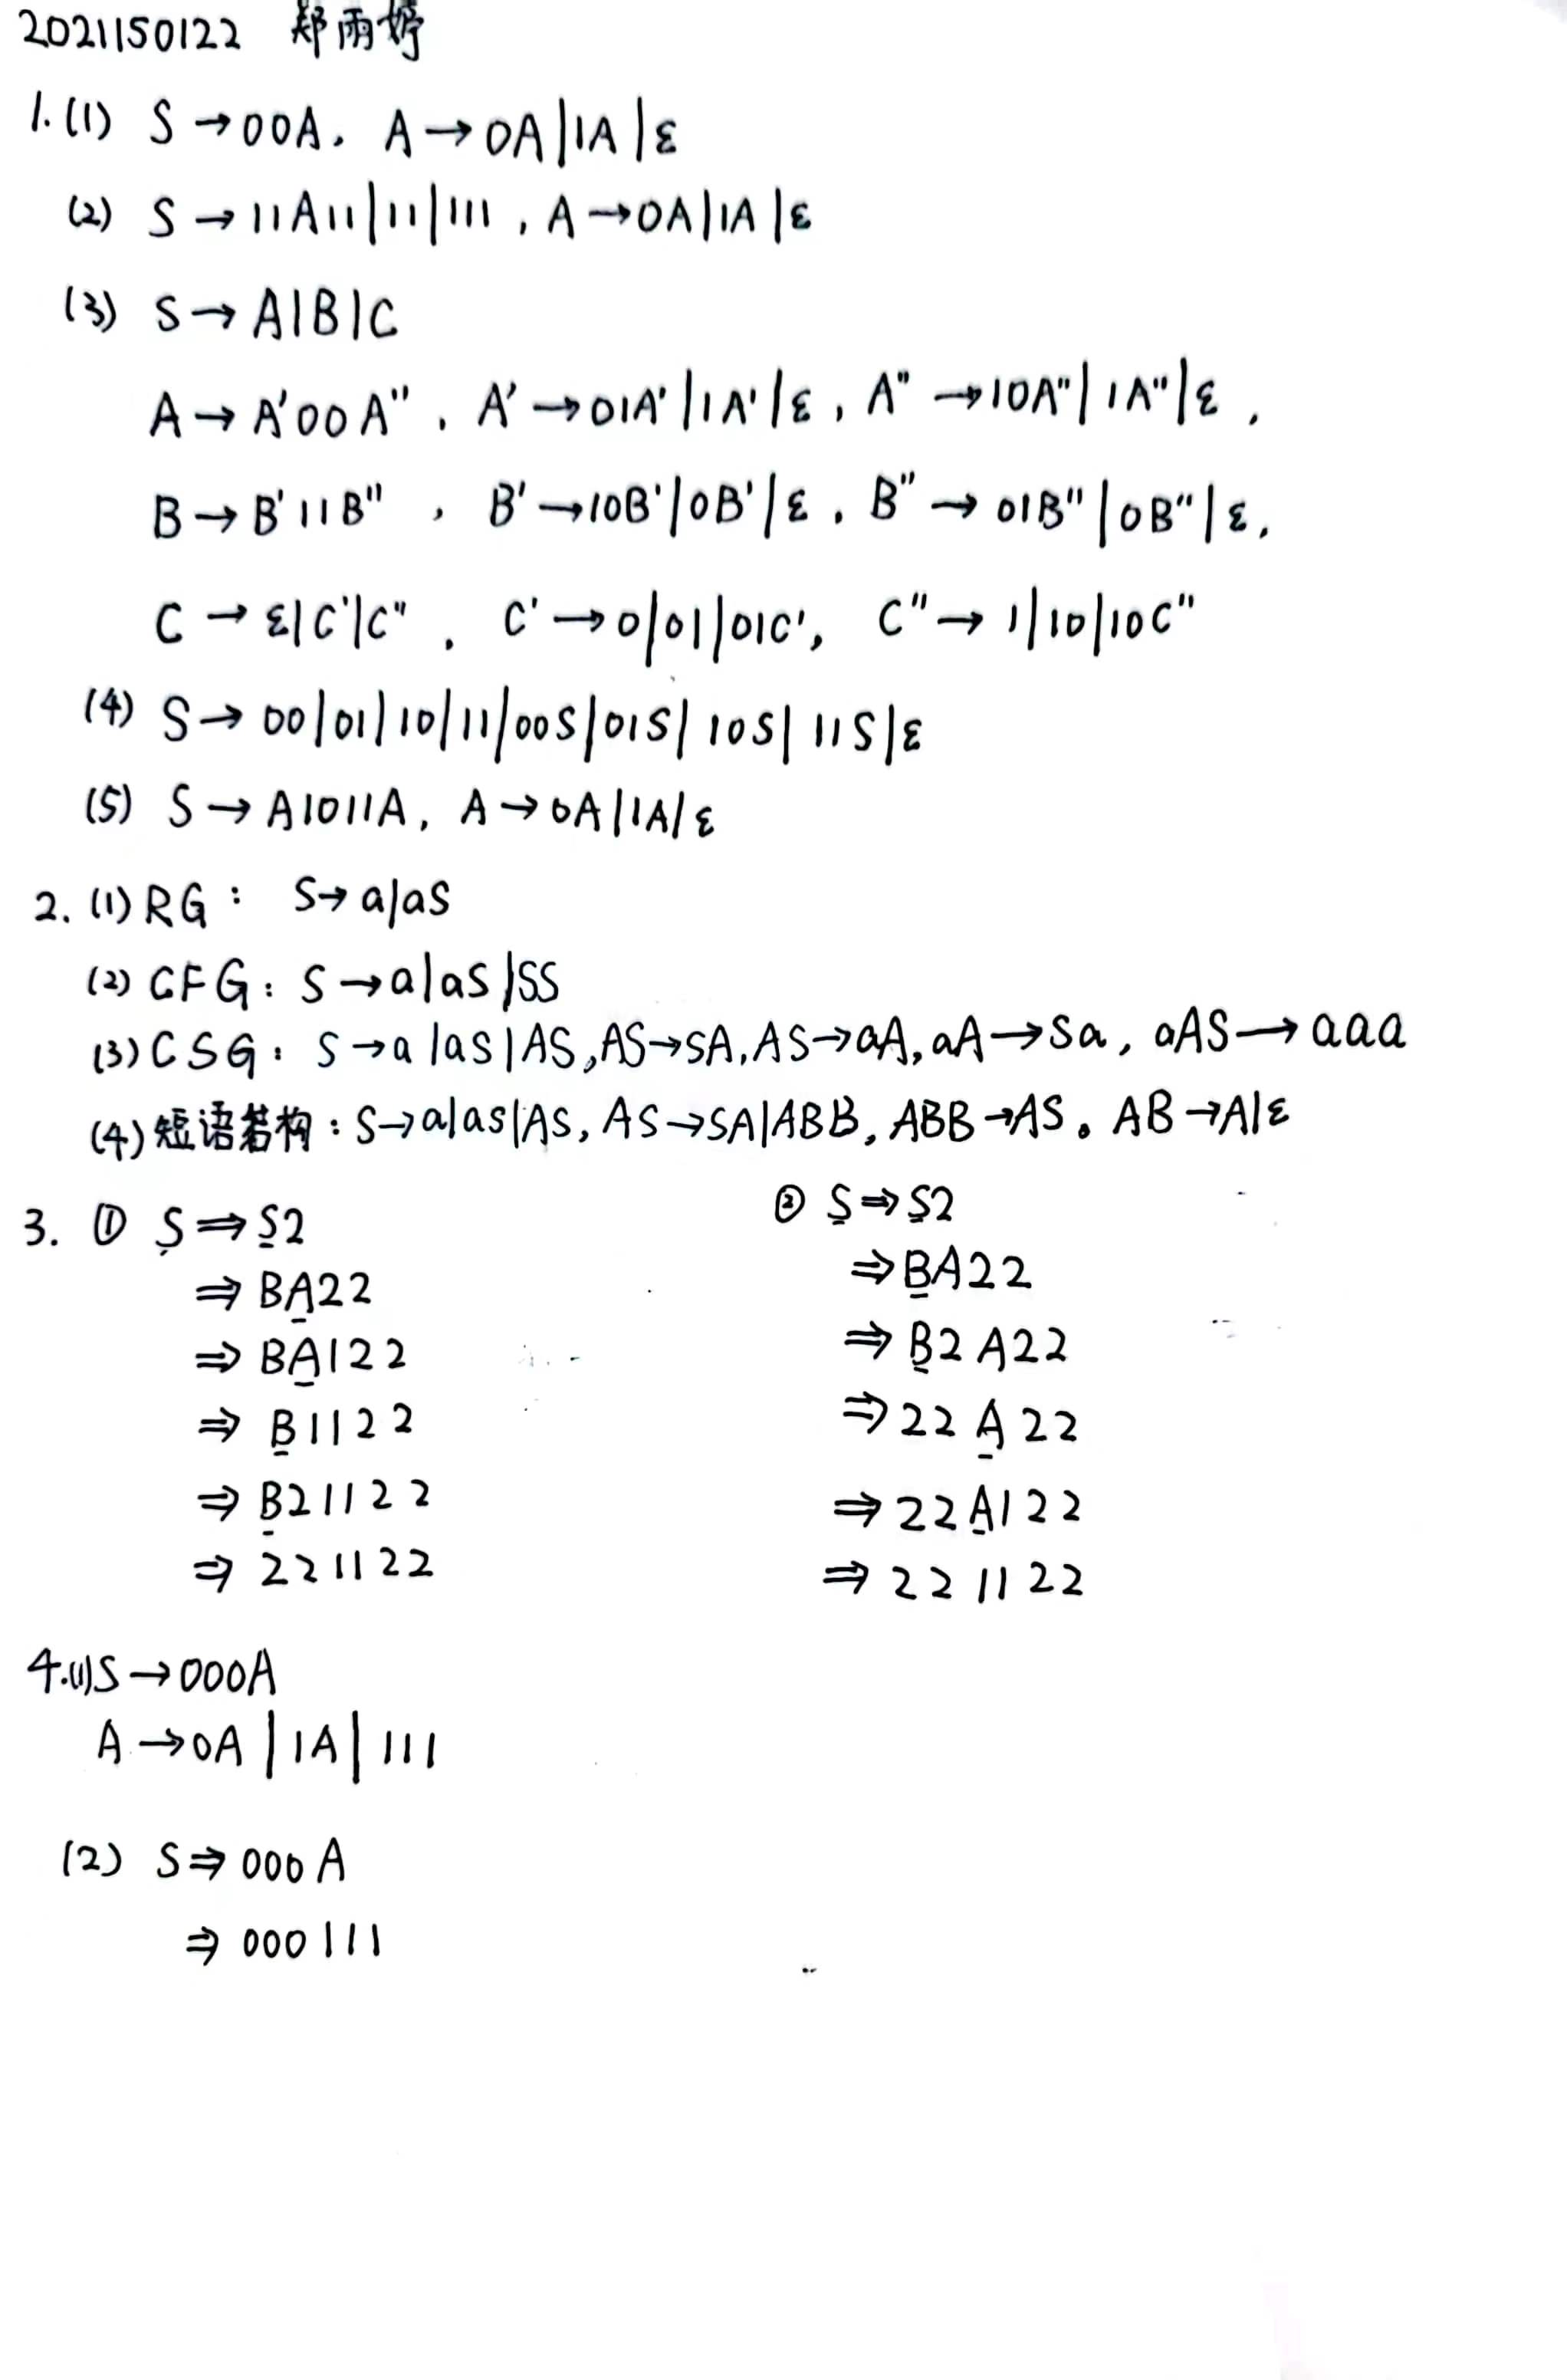 2021150122 郑雨婷
1.(1) S→00A, A→0A|1A|ε
(2) S→11A11|11|111, A→0A|1A|ε
(3) S→A|B|C
A→A'00A", A'→01A'|1A'|ε, A"→10A"|1A"|ε,
B→B'11B", B'→10B'|0B'|ε, B"→01B"|0B"|ε,
C→ε|C'|C", C'→0|01|01C', C"→1|10|10C"
(4) S→00|01|10|11|00S|01S|10S|11S|ε
(5) S→A1011A, A→0A|1A|ε
2. (1) RG: S→a|aS
(2) CFG: S→a|aS|SS
(3) CSG: S→a|aS|AS, AS→SA, AS→aA, aA→Sa, aAS→aaa
(4) 短语结构: S→a|aS|AS, AS→SA|ABB, ABB→AS. AB→A|ε
3. ① S⇒S2
⇒BA22
⇒BA122
⇒B1122
⇒B21122
⇒221122
② S⇒S2
⇒BA22
⇒B2A22
⇒22A22
⇒22A122
⇒221122
4.(1) S→000A
A→0A|1A|111
(2) S⇒000A
⇒000111